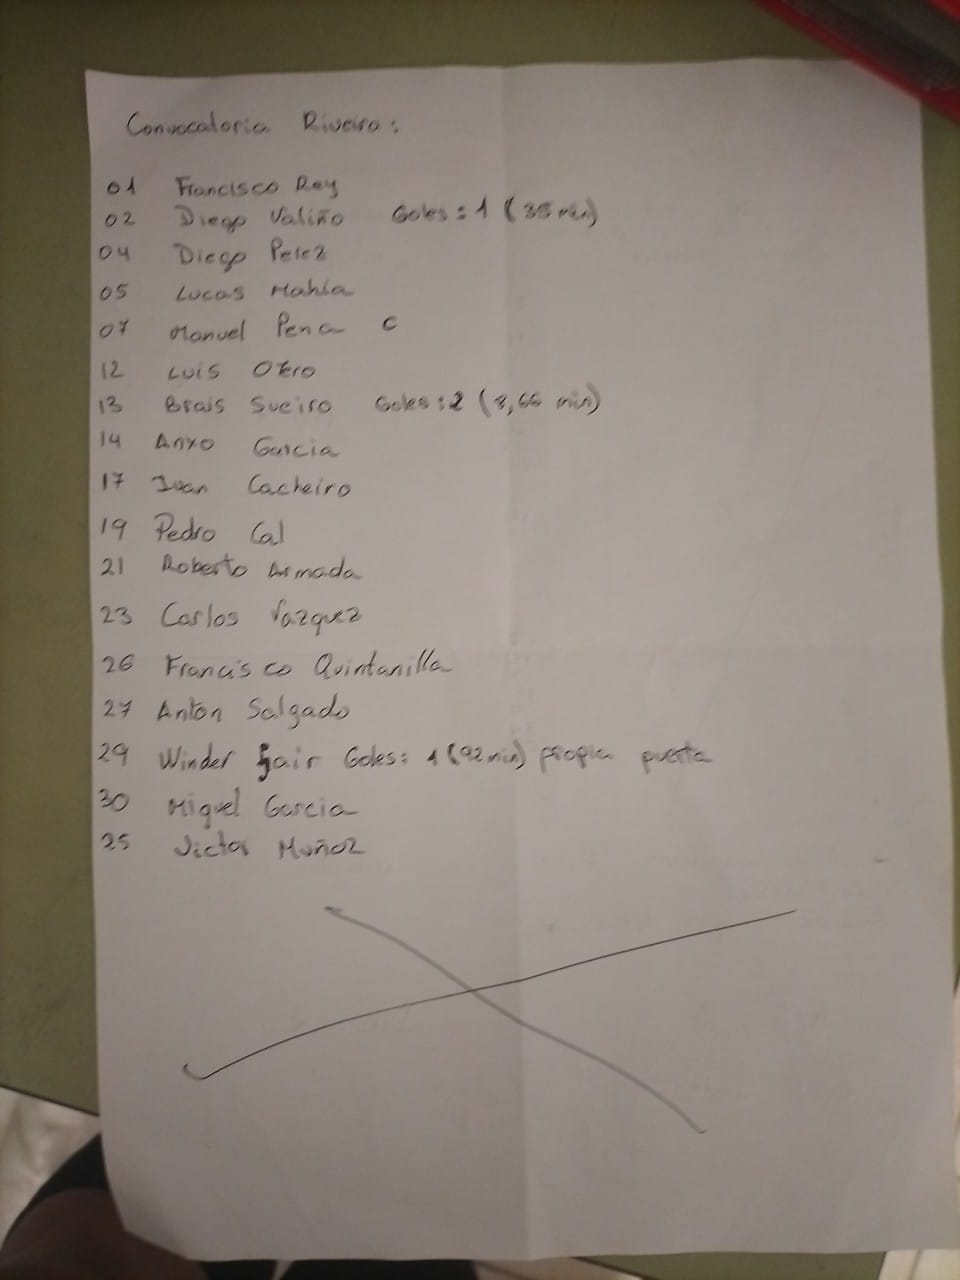 Convocatoria Riveiro:
01 Francisco Rey
02 Diego Valiño Goles: 1 (35 min)
04 Diego Perez
05 Lucas Mahía
07 Manuel Pena C
12 Luis Otero
13 Brais Sueiro Goles: 2 (8,66 min)
14 Anxo Garcia
17 Ivan Cacheiro
19 Pedro Cal
21 Roberto Armada
23 Carlos Vazquez
26 Francisco Quintanilla
27 Anton Salgado
29 Winder Goles: 1 (92 min) propia puerta
30 Miguel Garcia
25 Victor Muñoz